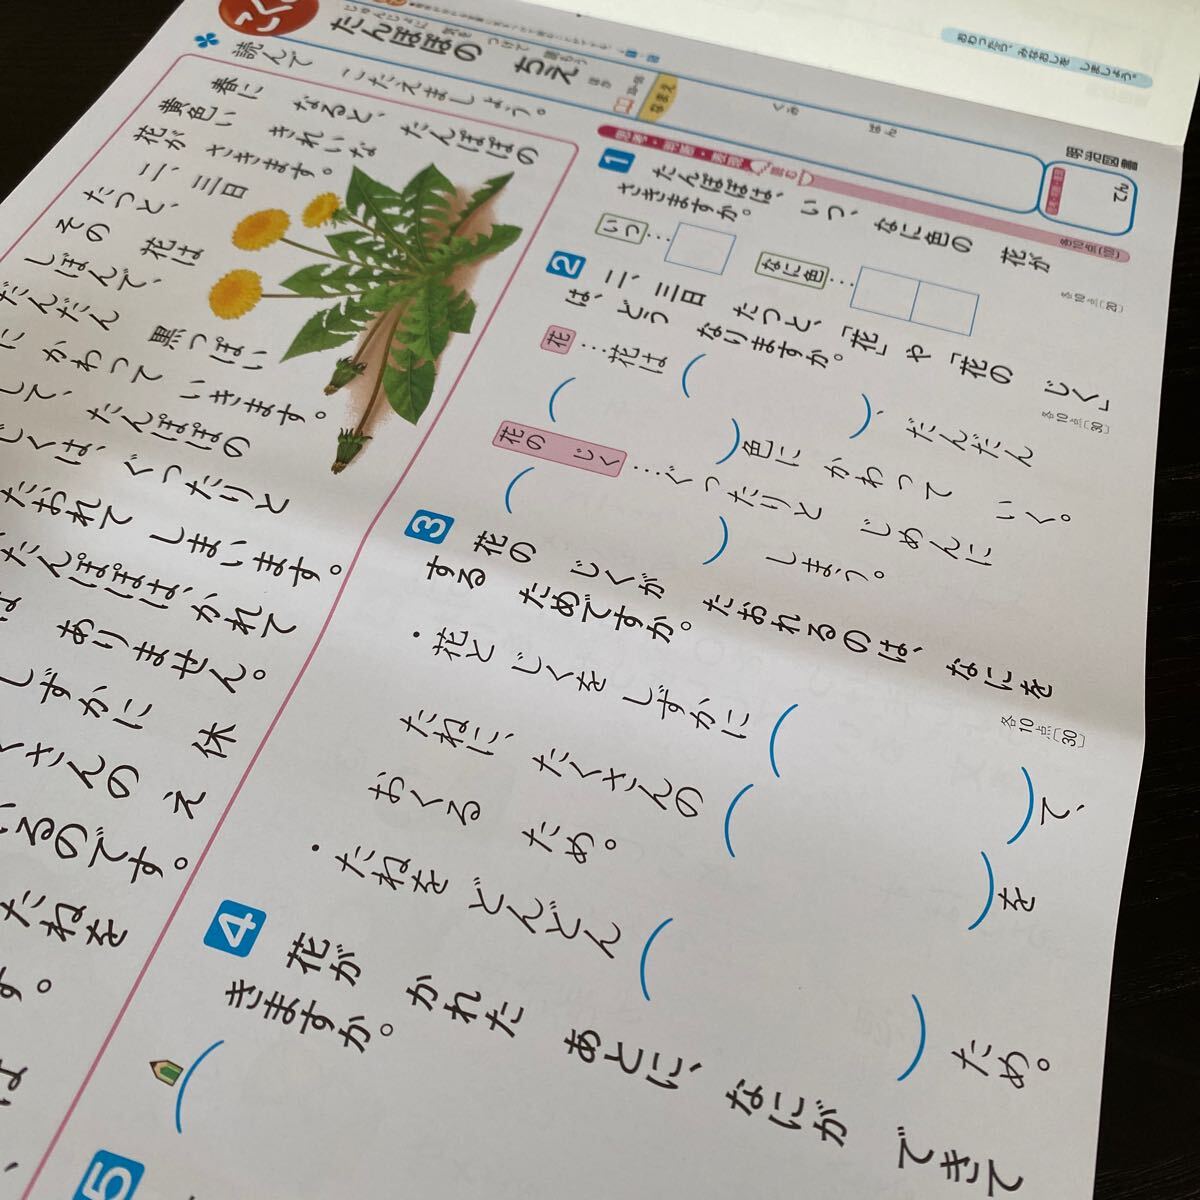 たんぽぽの ちえ
なまえ
くみ
ばん
明治図書
てん
おわったら、みなおしを しましょう。
読んで こたえましょう。
春に なると、たんぽぽの
黄色い きれいな
花が さきます。
二、三日
たつと、
その 花は
しぼんで、
だんだん 黒っぽい
に かわって いきます。
して、たんぽぽの
じくは、ぐったりと
たおれて しまいます。
たんぽぽは、かれて
ありません。
しずかに 休
くさんの え
いるのです。
たねを
す。
思考・判断・表現
読む
各10点〔100〕
1 たんぽぽは、いつ、なに色の 花が
さきますか。
各10点〔20〕
いつ…
なに色…
2 二、三日 たつと、「花」や「花の じく」
は、どう なりますか。
各10点〔30〕
花…花は( )、だんだん
( )色に かわって いく。
花の じく…ぐったりと じめんに
( )しまう。
3 花の じくが たおれるのは、なにを
する ためですか。
各10点〔30〕
・花と じくを しずかに( )て、
たねに、たくさんの( )を
おくる ため。
・たねを どんどん( )ため。
4 花が かれた あとに、なにが できて
きますか。
( )
5